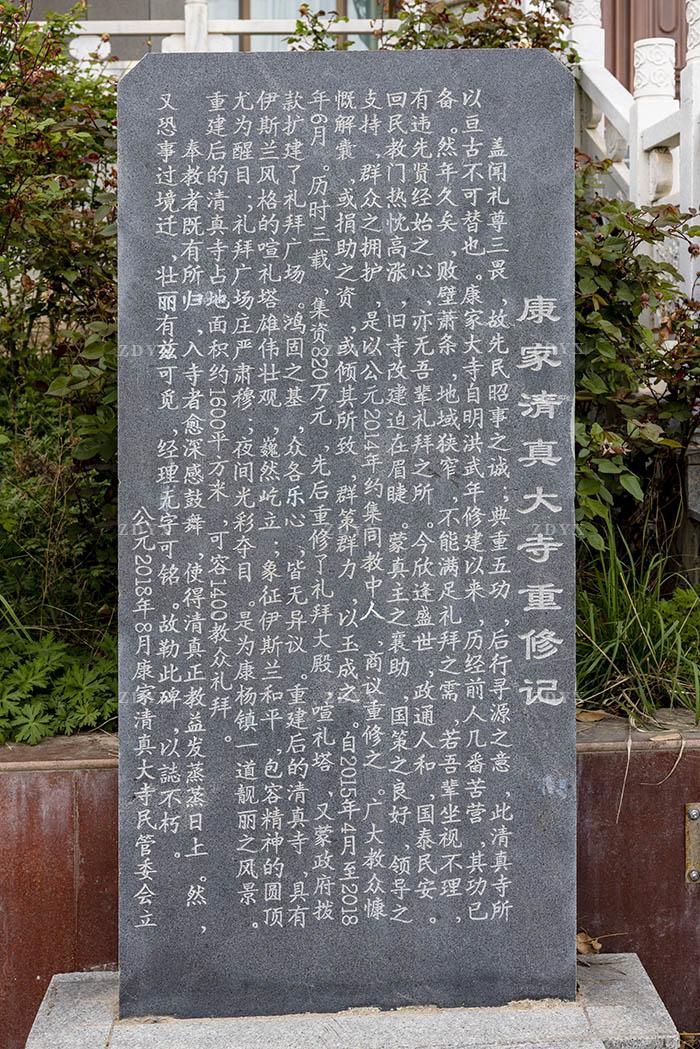 康家清真大寺重修记
盖闻礼尊三畏，故先民昭事之诚；典重五功，后行寻源之意，此清真寺所
以亘古不可替也。康家大寺自明洪武年修建以来，历经前人几番苦营，其功已
备。然年久矣，败壁萧条，地域狭窄，不能满足礼拜之需，若吾辈坐视不理，
有违先贤经始之心，亦无吾辈礼拜之所。今欣逢盛世，政通人和，国泰民安。
回民教门热忱高涨，旧寺改建迫在眉睫。蒙真主之襄助，国策之良好，领导之
支持，群众之拥护，是以公元2014年约集同教中人，商议重修之。广大教众慷
慨解囊，或捐助之资，或倾其所致，群策群力，以玉成之。自2015年4月至2018
年6月。历时三载，集资820万元，先后重修了礼拜大殿，喧礼塔，又蒙政府拨
款扩建了礼拜广场。鸿固之基，众各乐心，皆无异议。重建后的清真寺，具有
伊斯兰风格的喧礼塔雄伟壮观，巍然屹立；象征伊斯兰和平，包容精神的圆顶
尤为醒目；礼拜广场庄严肃穆；夜间光彩夺目。是为康杨镇一道靓丽之风景。
重建后的清真寺占地面积约1600平方米，可容1400教众礼拜。
奉教者既有所归，入寺者愈深感鼓舞，使得清真正教益发蒸蒸日上。然，
又恐事过境迁，壮丽有兹可觅，经理无字可铭。故勒此碑，以誌不朽。
公元2018年8月康家清真大寺民管委会立
ZDYX
ZDYX
ZDYX
ZDYX
ZDYX
ZDYX
ZDYX
ZDYX
ZDYX